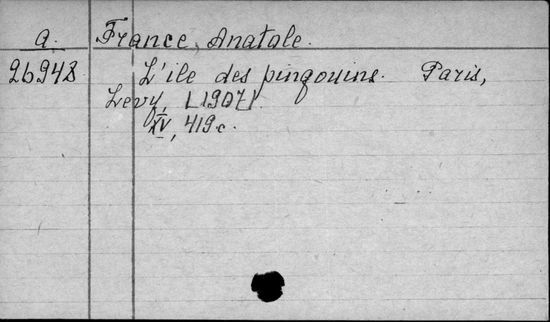 a. France, Anatole.
26948 L'ile des pingouins. Paris,
Levy, [1907].
XV, 419 c.